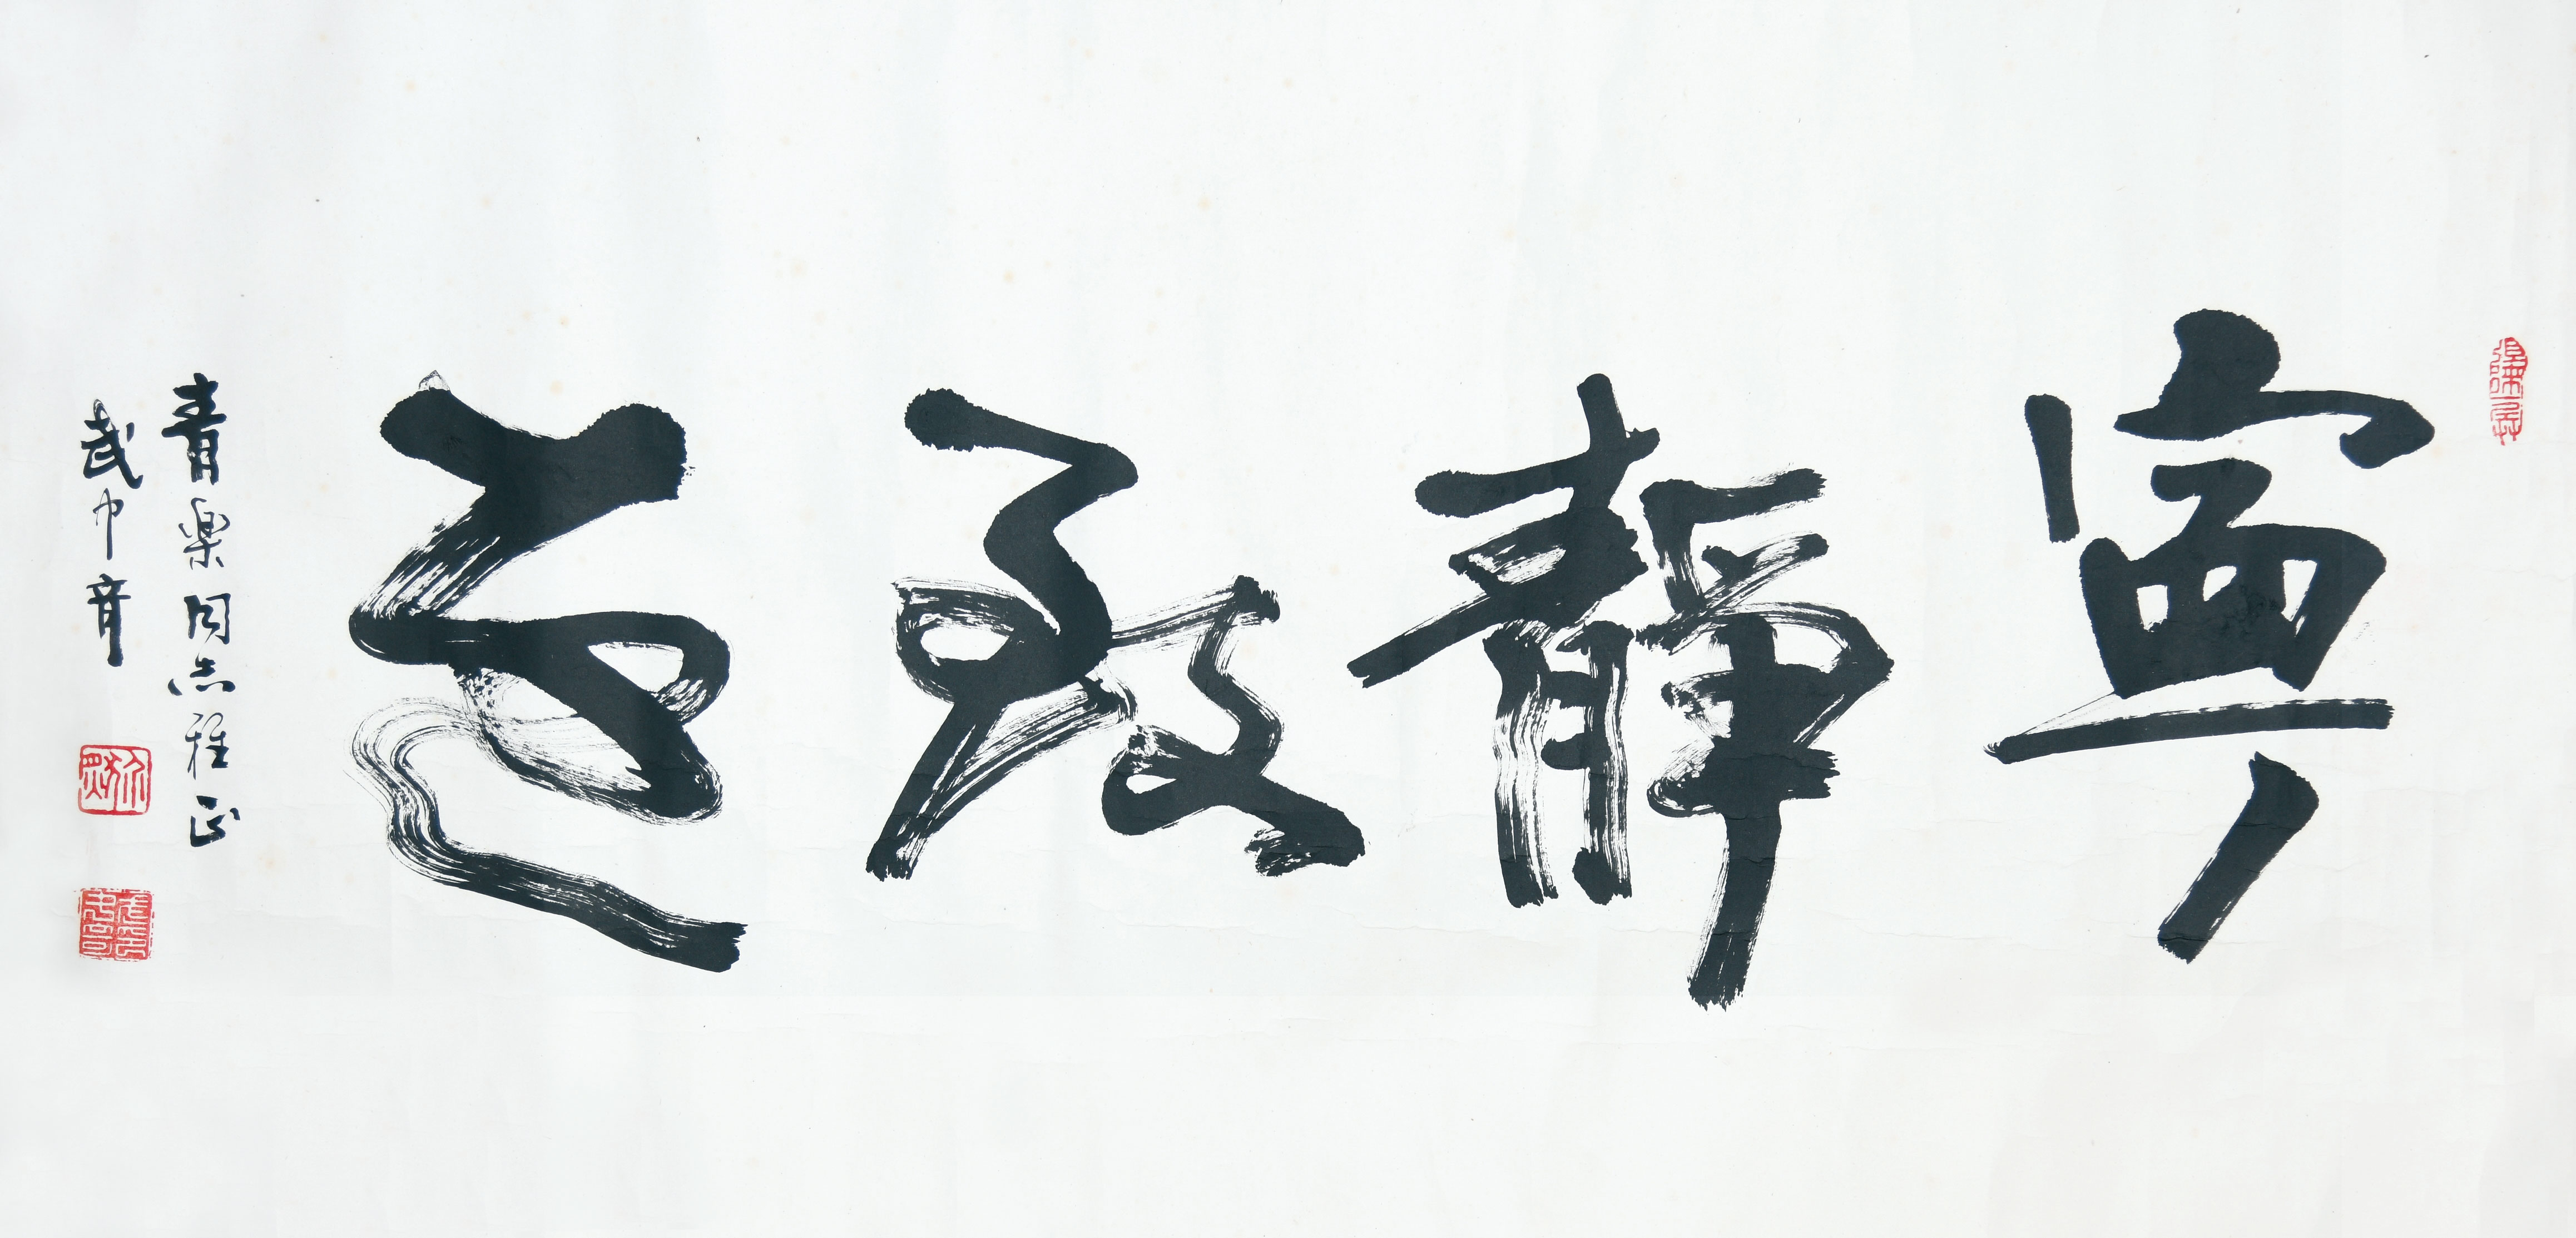 寧靜致遠
青樂同志雅正
武中奇